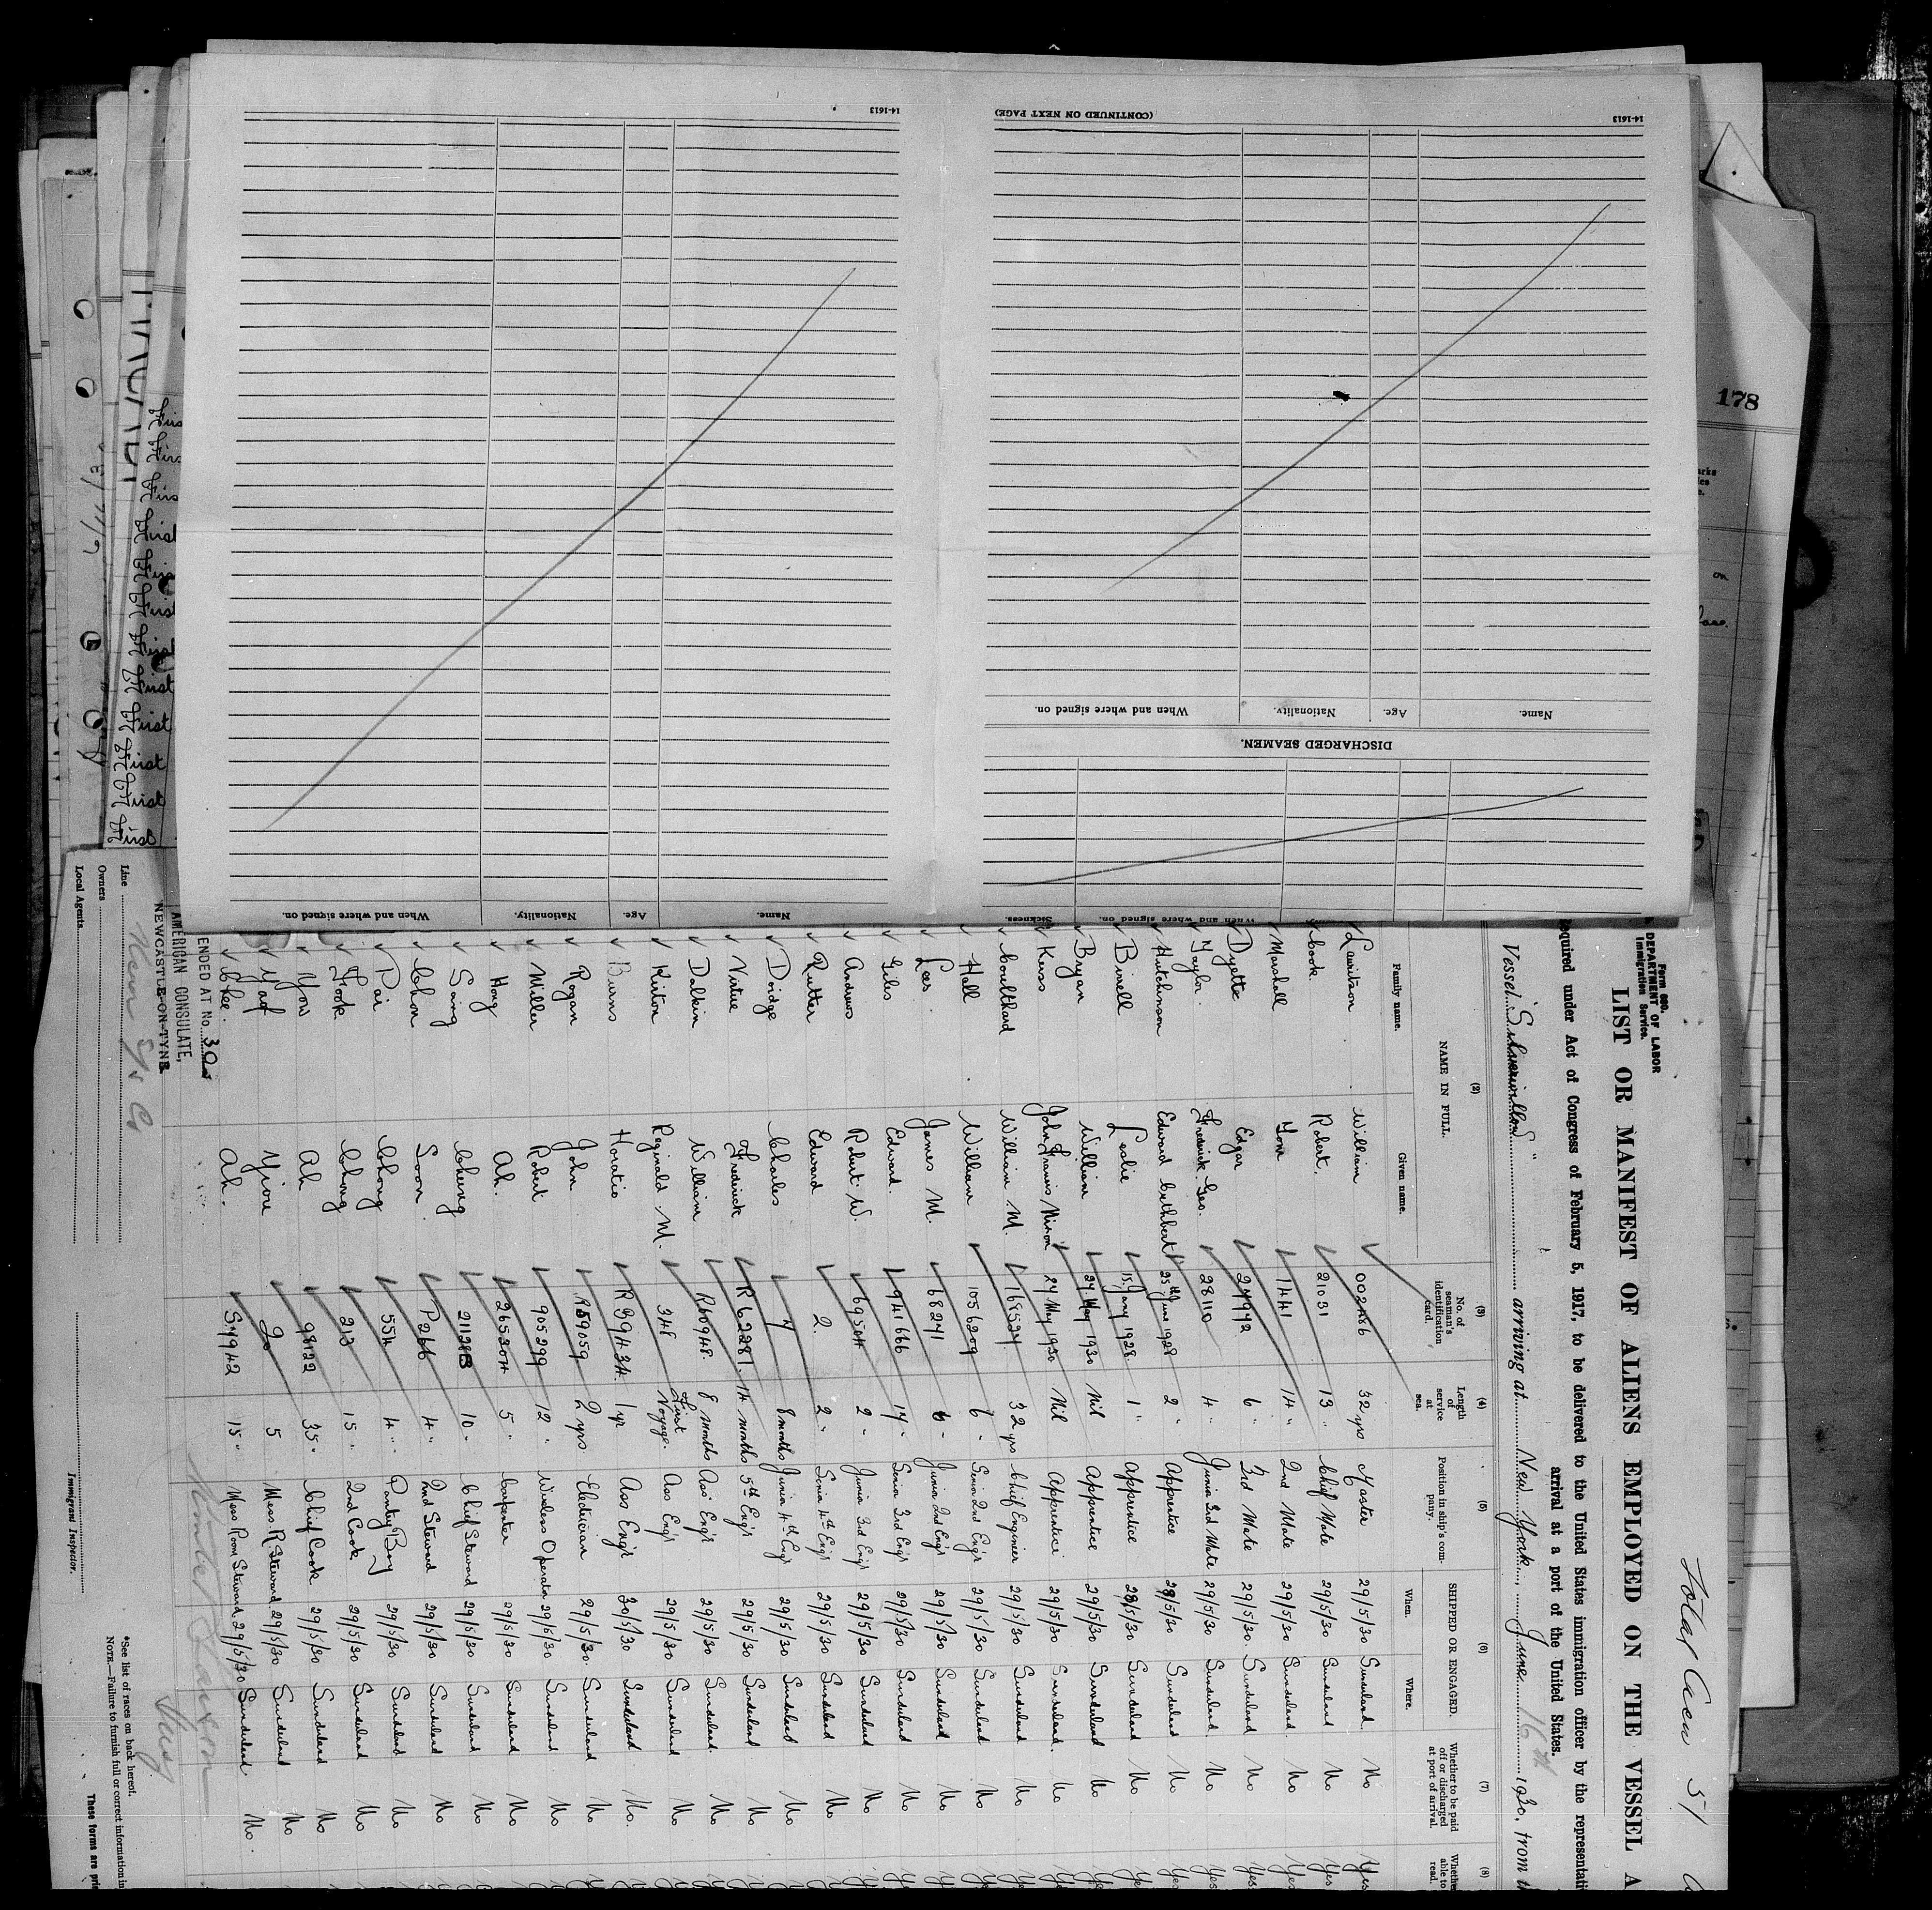 14-1613
14-1613
(CONTINUED ON NEXT PAGE)
DISCHARGED SEAMEN.
Name. Age. Nationality. When and where signed on.
Name. Age. Nationality. When and where signed on.
When and where signed on. Sickness.
178
First
First
First
First
First
First
First
First
First
First
First
First
Total Crew 51
Form 680.
DEPARTMENT OF LABOR
Immigration Service.
LIST OR MANIFEST OF ALIENS EMPLOYED ON THE VESSEL A
Required under Act of Congress of February 5, 1917, to be delivered to the United States immigration officer by the representati
arrival at a port of the United States.
Vessel "Silverwillow" arriving at New York, June 16th 1930, from th
(2) (3) (4) (5) (6) (7) (8)
NAME IN FULL. No. of seaman's identification card. Length of service at sea. Position in ship's company. SHIPPED OR ENGAGED. Whether to be paid off or discharged at port of arrival. Whether able to read.
Family name. Given name. When. Where.
Lauritson William 002486 32 yrs Master 29/5/30 Sunderland No Yes
Cook Robert. 21031 13 " Chief Mate 29/5/30 Sunderland No Yes
Marshall Tom 1441 14 " 2nd Mate 29/5/30 Sunderland No Yes
Dyette Edgar 24942 6 " 3rd Mate 29/5/30 Sunderland No Yes
Taylor. Frederick. Geo. 28110 4 " Junior 3rd Mate 29/5/30 Sunderland No Yes
Hutchinson Edward Cuthbert 25th June 1928 2 " Apprentice 29/5/30 Sunderland No
Binell Leslie 15. Jany 1928. 1 " Apprentice 29/5/30 Sunderland No
Bryan William 27 May 1930 Nil Apprentice 29/5/30 Sunderland No
Kerss John Francis Nixon 27 May 1930 Nil Apprentice 29/5/30 Sunderland. No
Coulthard William M. 168537 32 yrs Chief Engineer 29/5/30 Sunderland No
Hall William 1056209 6 " Senior 2nd Eng'r 29/5/30 Sunderland No
Lees James M. 68271 6 " Junior 2nd Eng'r 29/5/30 Sunderland No
Giles Edward. 941666 17 " Senior 3rd Eng'r 29/5/30 Sunderland No
Andrews Robert. W. 69504 2 " Junior 3rd Eng'r 29/5/30 Sunderland No
Rutter Edward 2. 2 " Senior 4th Eng'r 29/5/30 Sunderland No
Doidge Charles 7 8 months Junior 4th Eng'r 29/5/30 Sunderland No
Virtue Frederick R62281. 14 months 5th Eng'r 29/5/30 Sunderland No
Dalkin William R60948. 8 months Ass Eng'r 29/5/30 Sunderland. No
Kirton Reginald M. 348 First Voyage. Ass Eng'r 29/5/30 Sunderland No
Burns Horatio R39434. 1 yr Ass Eng'r 30/5/30 Sunderland. No.
Rogan John R59059 2 yrs Electrician 29/5/30. Sunderland No
Miller Robert 905299 12 " Wireless Operator 29/5/30 Sunderland No
Hong Ah. 265204 5 " Carpenter 29/5/30 Sunderland No
Sang Cheung 21328B 10 " Chief Steward 29/5/30 Sunderland No
Chon Soon P266 4 " 2nd Steward 29/5/30 Sunderland No
Pai Chong 554 4 " Pantry Boy 29/5/30 Sunderland No
Fook Chong 213 15 " 2nd Cook 29/5/30 Sunderland No
Yow Ah 98122 35 " Chief Cook 29/5/30 Sunderland No
Yaf Yiou 5 Mess R. Steward. 29/5/30 Sunderland No
Chee. Ah. S.4942 15 " Mess Room Steward. 29/5/30 Sunderland No.
ENDED AT No. 30
AMERICAN CONSULATE,
NEWCASTLE-ON-TYNE
Line
Owners
Local Agents
Immigrant Inspector.
*See list of races on back hereof.
NOTE.—Failure to furnish full or correct information in
These forms are pri